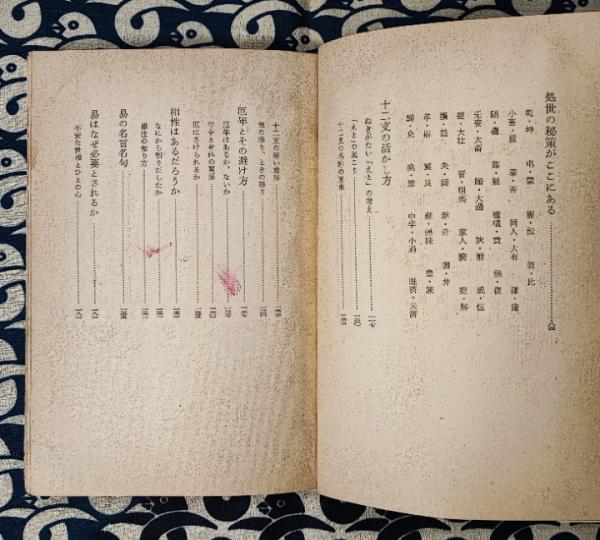 処世の秘策がここにある
乾・坤 屯・蒙 需・訟 師・比
小畜・履 泰・否 同人・大有 謙・豫
随・蠱 臨・観 噬嗑・賁 剝・復
无妄・大畜 頤・大過 坎・離 咸・恒
遯・大壮 晋・明夷 家人・睽 蹇・解
損・益 夬・姤 萃・升 困・井
革・鼎 震・艮 漸・帰妹 豊・旅
巽・兌 渙・節 中孚・小過 既済・未済
十二支の活かし方
ぬきがたい「えと」の考え
「えと」の起こり
十二支の名称の意味
十二支の深い意味
気の移り、ときの移り
厄年とその避け方
厄年はあるか、ないか
年令と身体の関係
厄はさけられるか
相性はあるだろうか
なにから割りだしたか
相性の知り方
易の名言名句
易はなぜ必要とされるか
不安な世相とひとの心